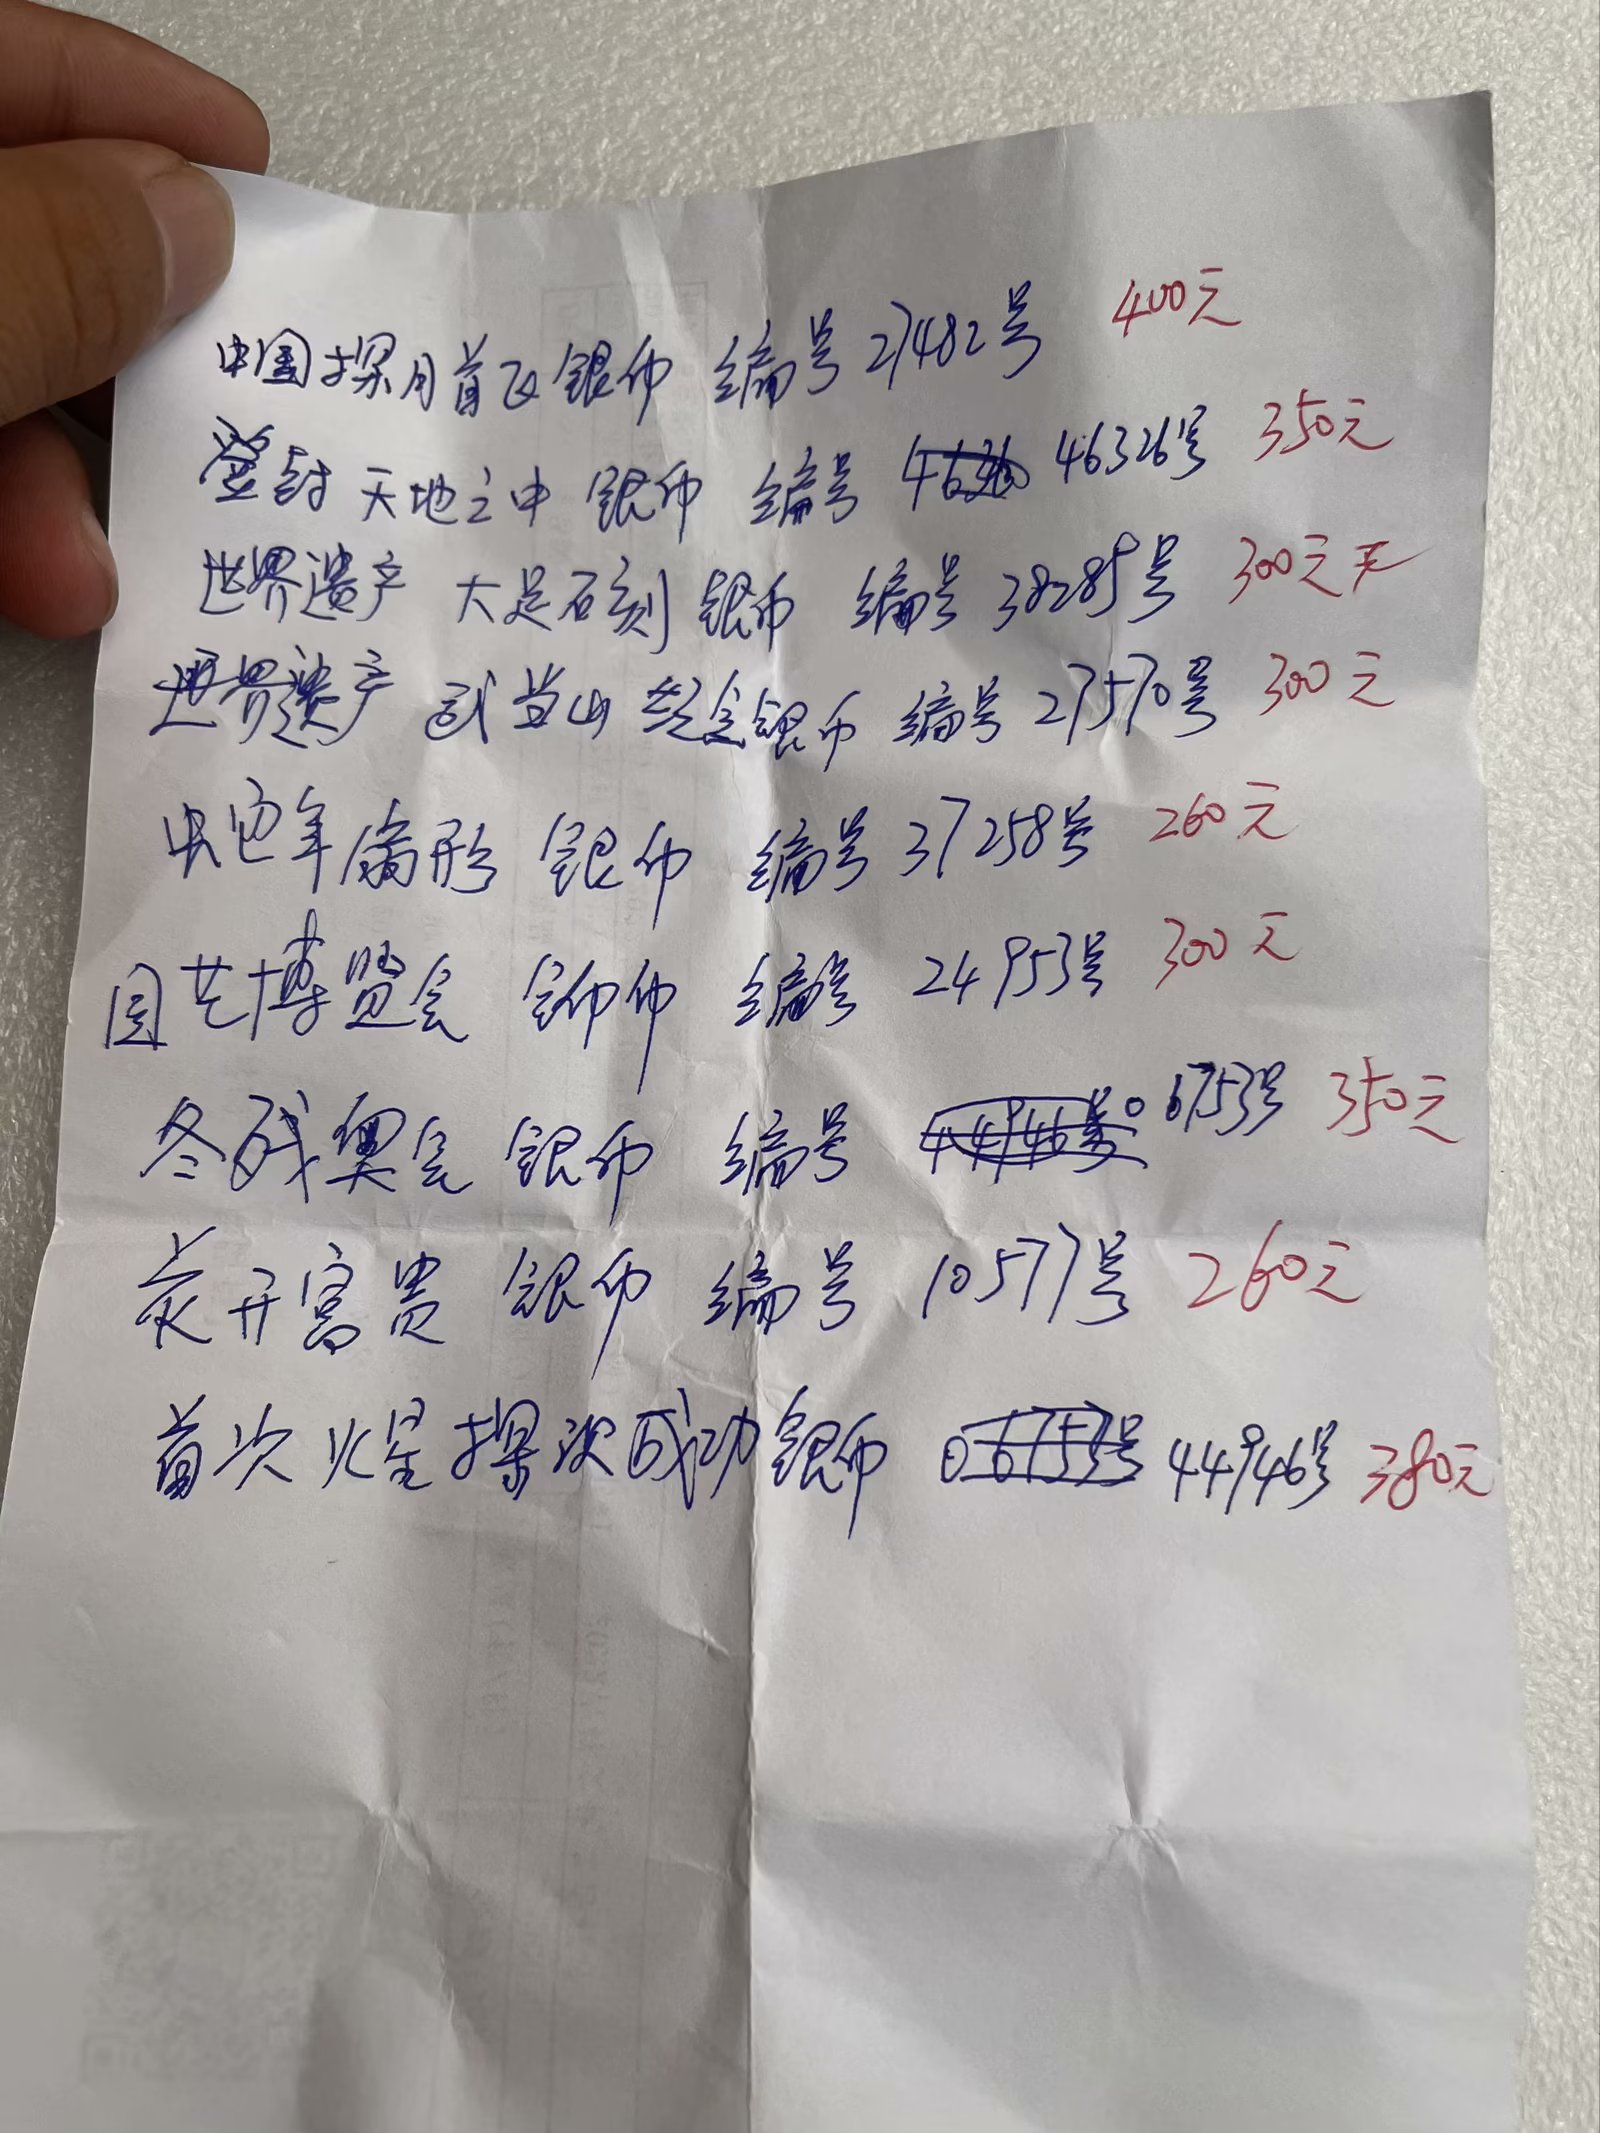 中国探月首飞银币 编号27482号 400元
登封 天地之中 银币 编号 46326号 350元
世界遗产 大足石刻 银币 编号 38285号 300元
世界遗产 武当山 银币 编号 27570号 300元
蛇年扇形 银币 编号 37258号 260元
园艺博览会 银币 编号 24953号 300元
冬残奥会 银币 编号 06753号 350元
花开富贵 银币 编号 10577号 260元
首次火星探次成功银币 44946号 380元